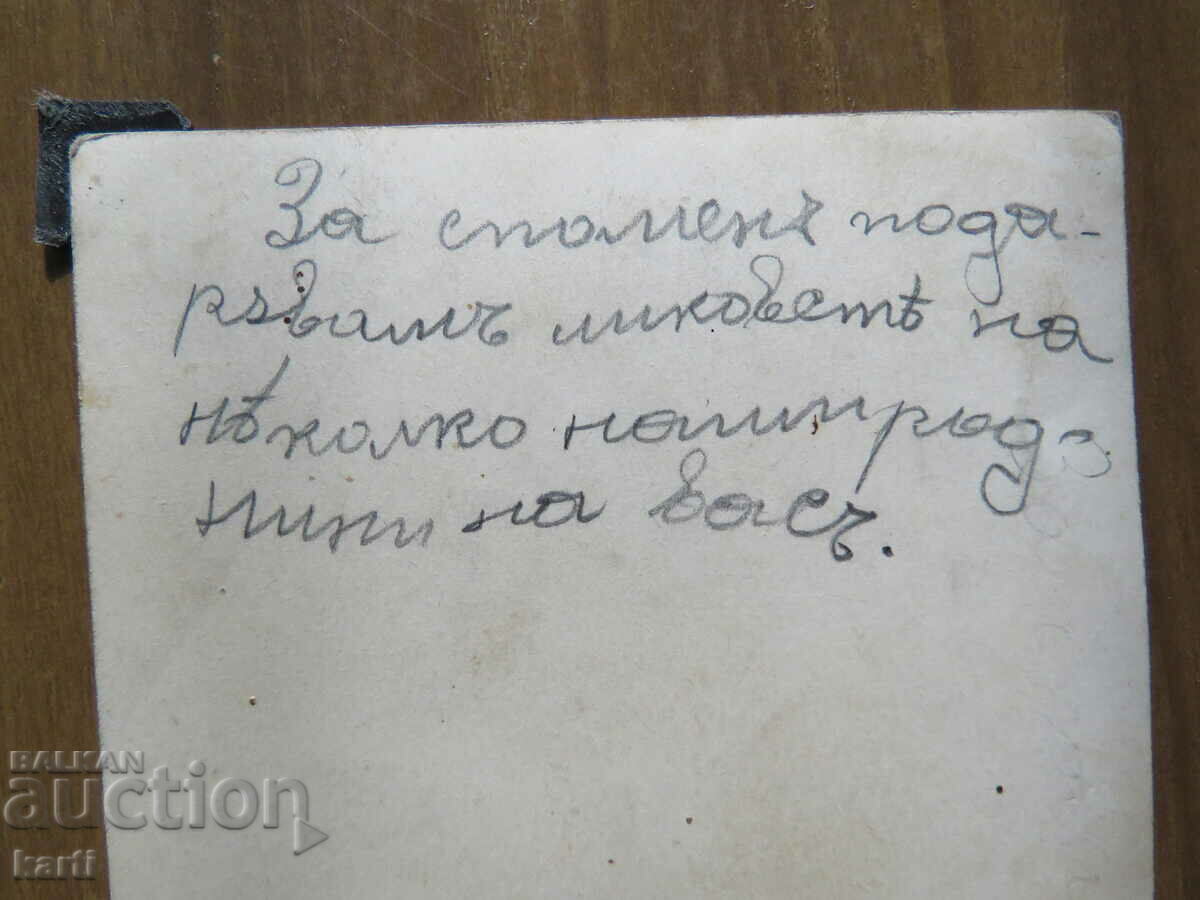 За споменъ пода-
ръвамъ ликоветѣ на
нѣколко наши род-
нини на васъ.
BALKAN
auction
karti